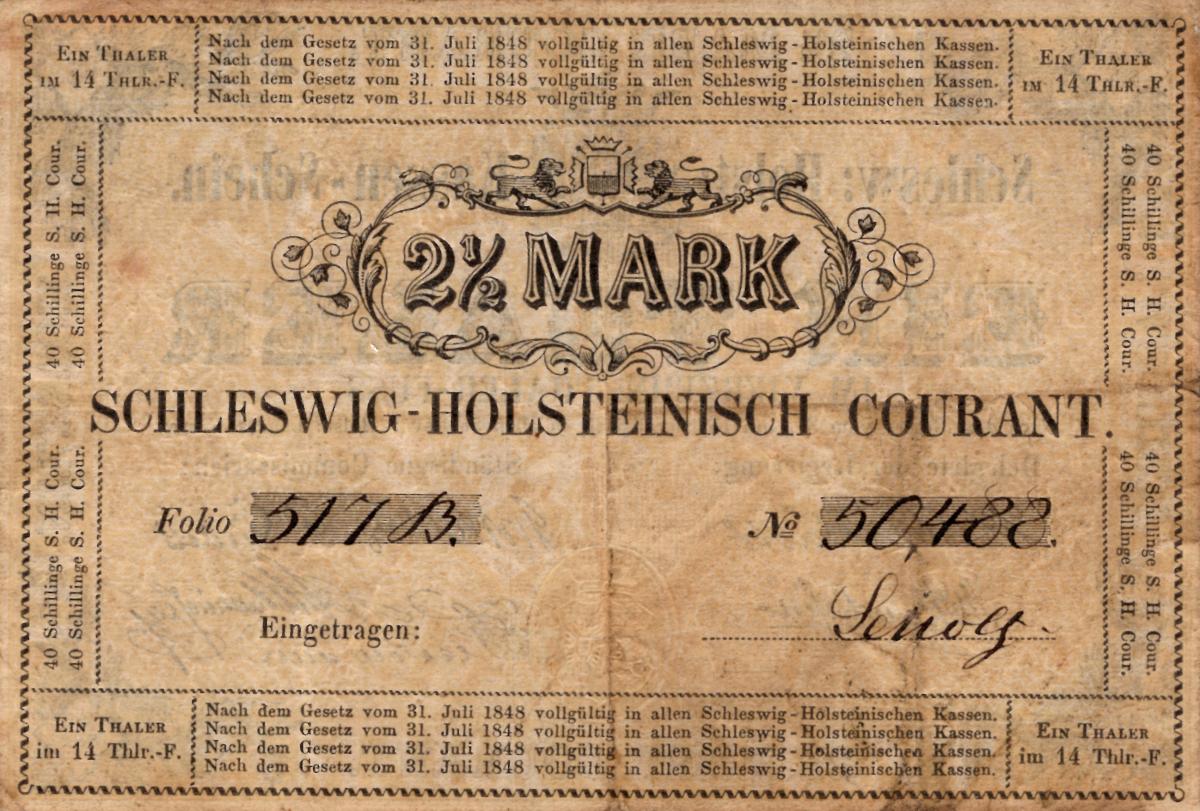 EIN THALER
IM 14 THLR.-F.
Nach dem Gesetz vom 31. Juli 1848 vollgültig in allen Schleswig-Holsteinischen Kassen.
Nach dem Gesetz vom 31. Juli 1848 vollgültig in allen Schleswig-Holsteinischen Kassen.
Nach dem Gesetz vom 31. Juli 1848 vollgültig in allen Schleswig-Holsteinischen Kassen.
Nach dem Gesetz vom 31. Juli 1848 vollgültig in allen Schleswig-Holsteinischen Kassen.
EIN THALER
IM 14 THLR.-F.
40 Schillinge S. H. Cour.
40 Schillinge S. H. Cour.
40 Schillinge S. H. Cour.
40 Schillinge S. H. Cour.
2½ MARK
SCHLESWIG-HOLSTEINISCH COURANT.
Folio 517 B.
No 50,488.
Eingetragen:
40 Schillinge S. H. Cour.
40 Schillinge S. H. Cour.
40 Schillinge S. H. Cour.
40 Schillinge S. H. Cour.
EIN THALER
im 14 Thlr.-F.
Nach dem Gesetz vom 31. Juli 1848 vollgültig in allen Schleswig-Holsteinischen Kassen.
Nach dem Gesetz vom 31. Juli 1848 vollgültig in allen Schleswig-Holsteinischen Kassen.
Nach dem Gesetz vom 31. Juli 1848 vollgültig in allen Schleswig-Holsteinischen Kassen.
Nach dem Gesetz vom 31. Juli 1848 vollgültig in allen Schleswig-Holsteinischen Kassen.
EIN THALER
im 14 Thlr.-F.